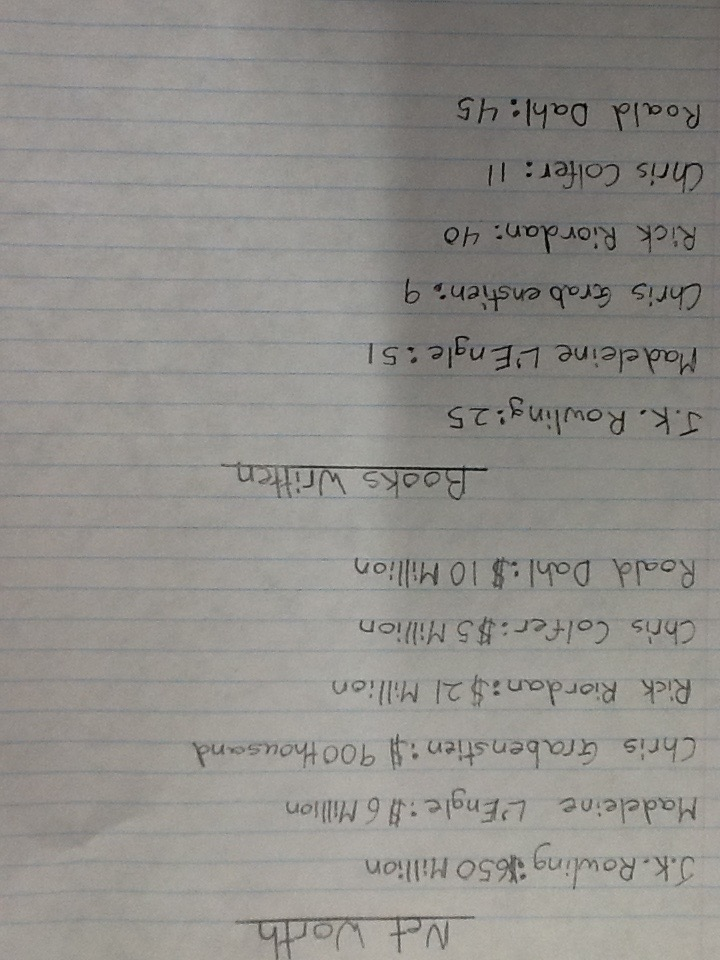 Net Worth
J.K. Rowling: $650 Million
Madeleine L'Engle: $6 Million
Chris Grabenstien: $900 thousand
Rick Riordan: $21 Million
Chris Colfer: $5 Million
Roald Dahl: $10 Million
Books Written
J.K. Rowling: 25
Madeleine L'Engle: 51
Chris Grabenstien: 9
Rick Riordan: 40
Chris Colfer: 11
Roald Dahl: 45